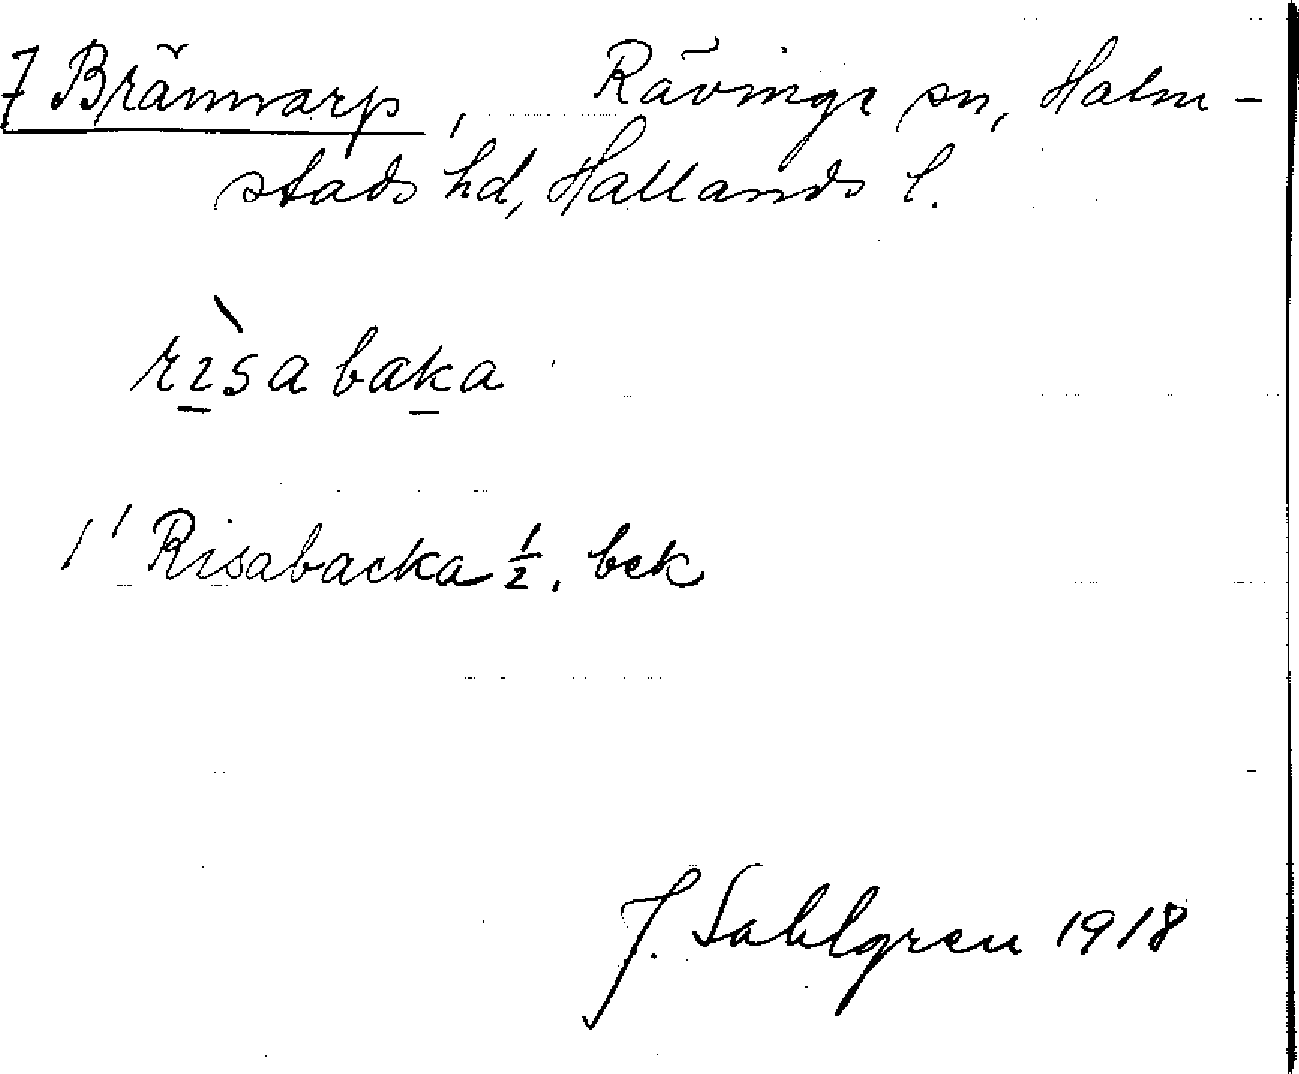 7 Brännarp, Rävinge sn, Halm-
stads hd, Hallands l.
rìsabaka
1' Risabacka ½. bek
J. Sahlgren 1918